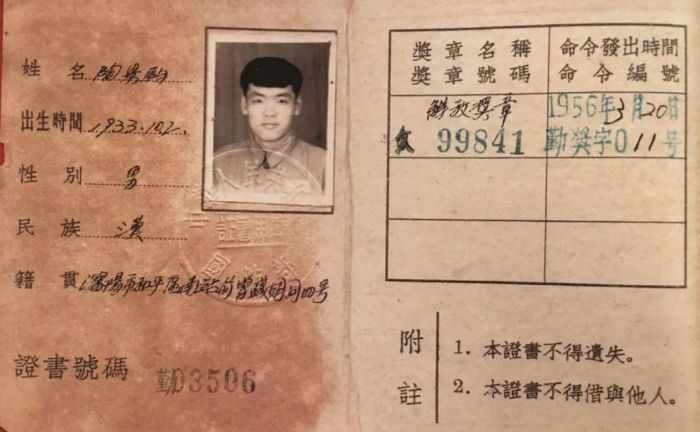 姓名 陶景
出生時間 1933.10.2.
性別 男
民族 漢
籍貫 瀋陽市和平區南站前胡同四号
證書號碼 勤03506
獎章名稱 命令發出時間
獎章號碼 命令編號
解放獎章 1956年3月20日
99841 勤獎字011号
附註
1. 本證書不得遺失。
2. 本證書不得借與他人。